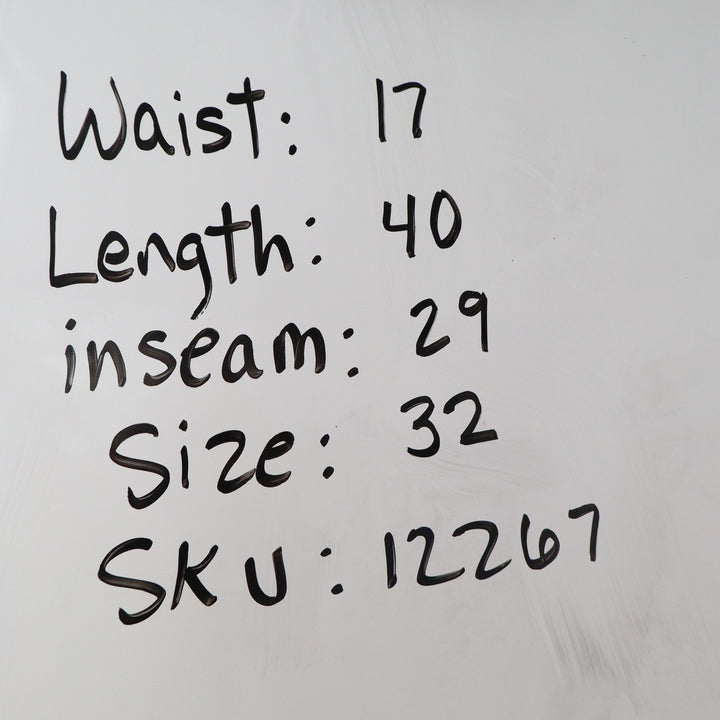 Waist: 17
Length: 40
inseam: 29
Size: 32
SKU: 12267